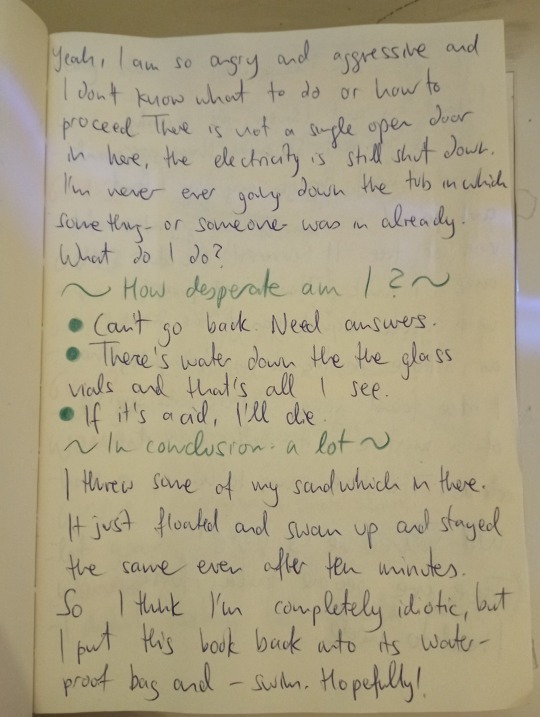 Yeah, I am so angry and aggressive and
I don't know what to do or how to
proceed. There is not a single open door
in here, the electricity is still shut down.
I'm never ever going down the tub in which
something- or someone was in already!
What do I do?
~ How desperate am I? ~
• Can't go back. Need answers.
• There's water down the the glass
vials and that's all I see.
• If it's acid, I'll die.
~ In conclusion: a lot ~
I threw some of my sandwhich in there.
It just floated and swam up and stayed
the same even after ten minutes.
So I think I'm completely idiotic, but
I put this book back into its water-
proof bag and – swim. Hopefully!